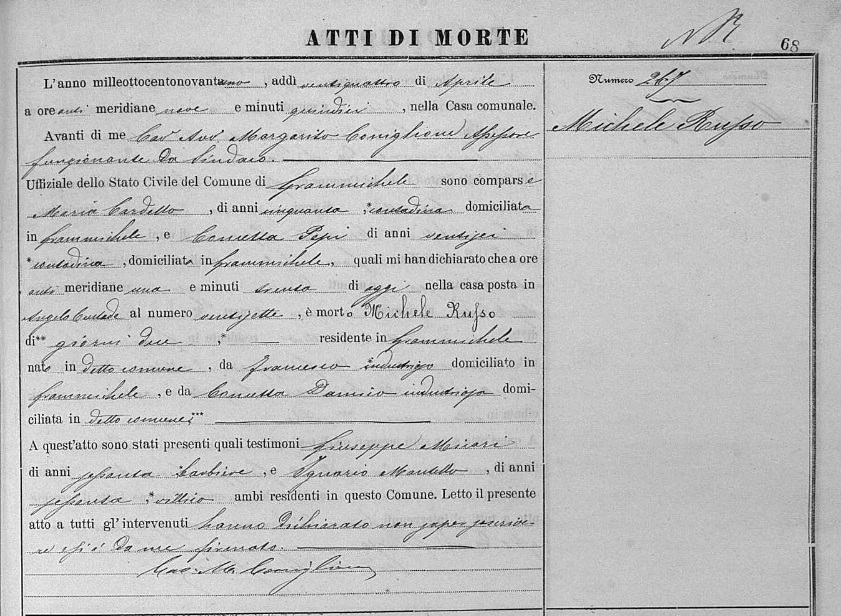 ATTI DI MORTE
68
Numero 267
Michele Russo
L'anno milleottocentonovantauno, addì ventiquattro di Aprile
a ore anti meridiane nove e minuti quindici, nella Casa comunale.
Avanti di me Cav. Avv. Margarito Coniglione Assessore
funzionante da Sindaco.
Uffiziale dello Stato Civile del Comune di Grammichele sono comparse
Maria Cardello, di anni cinquanta *contadina domiciliata
in Grammichele, e Concetta Pepi di anni ventisei
*contadina, domiciliata in Grammichele, quali mi han dichiarato che a ore
anti meridiane una e minuti trenta di oggi nella casa posta in
Angelo Custode al numero ventisette, è morto Michele Russo
di** giorni due,* residente in Grammichele
nato in detto comune, da Francesco domiciliato in
Grammichele, e da Concetta domi-
ciliata in detto comune;***
A quest'atto sono stati presenti quali testimoni Giuseppe
di anni sessanta barbiere, e Ignazio, di anni
sessanta ambi residenti in questo Comune. Letto il presente
atto a tutti gl' intervenuti hanno dichiarato non saper sottoscrive-
re e si è da me firmato.
Cav. M. Coniglione